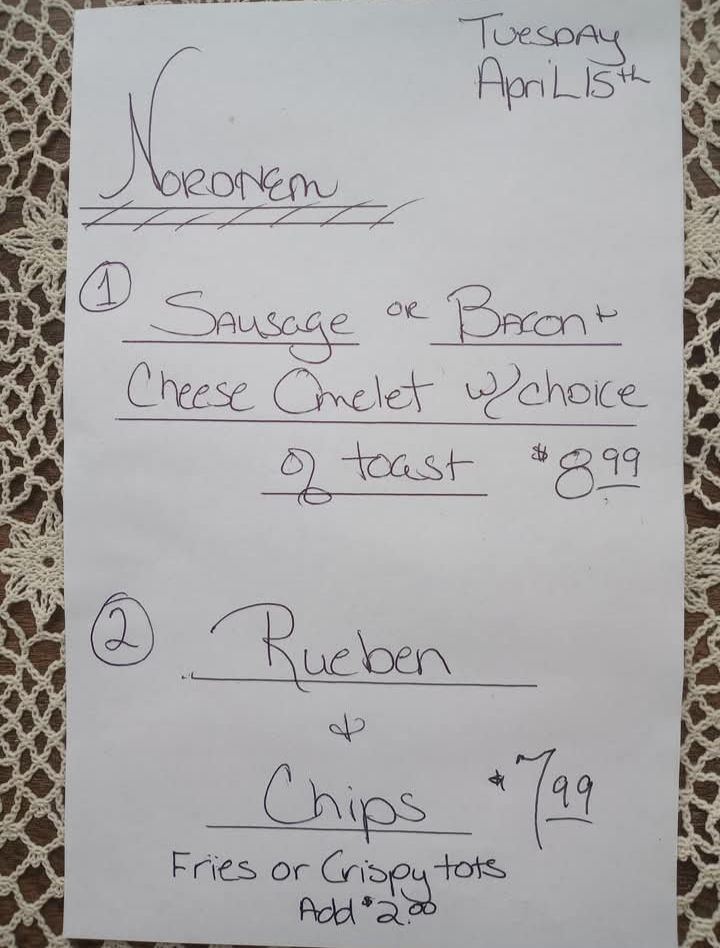 Tuesday
April 15th
Nordnem
1 Sausage or Bacon +
Cheese Omelet w/choice
of toast $8.99
2 Rueben
&
Chips $7.99
Fries or Crispy tots
Add $2.00